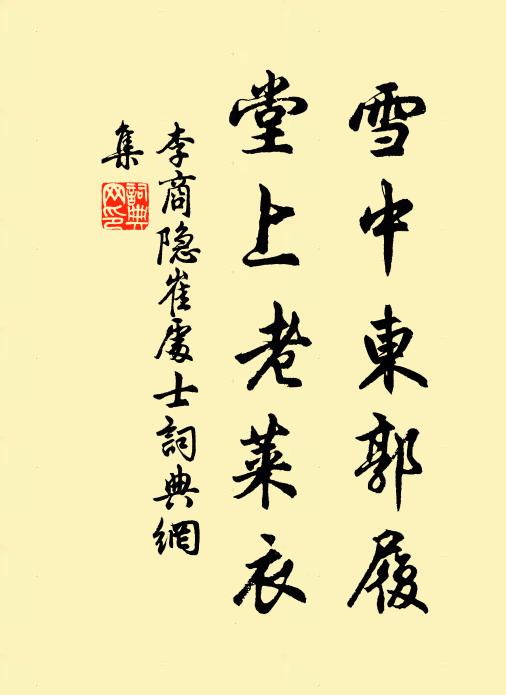 雪中東郭履
堂上老萊衣
李商隐崔處士詞典網
集
詞典
网印